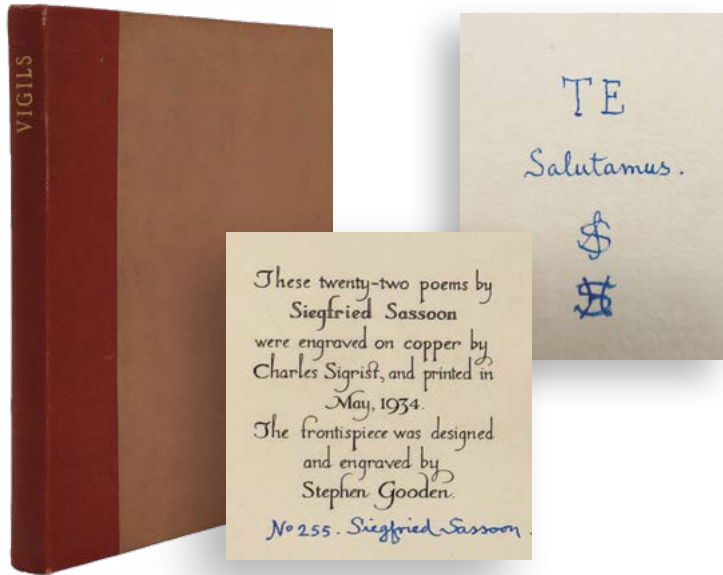 VIGILS
TE
Salutamus.
These twenty-two poems by
Siegfried Sassoon
were engraved on copper by
Charles Sigrist, and printed in
May, 1934.
The frontispiece was designed
and engraved by
Stephen Gooden.
No 255. Siegfried Sassoon.